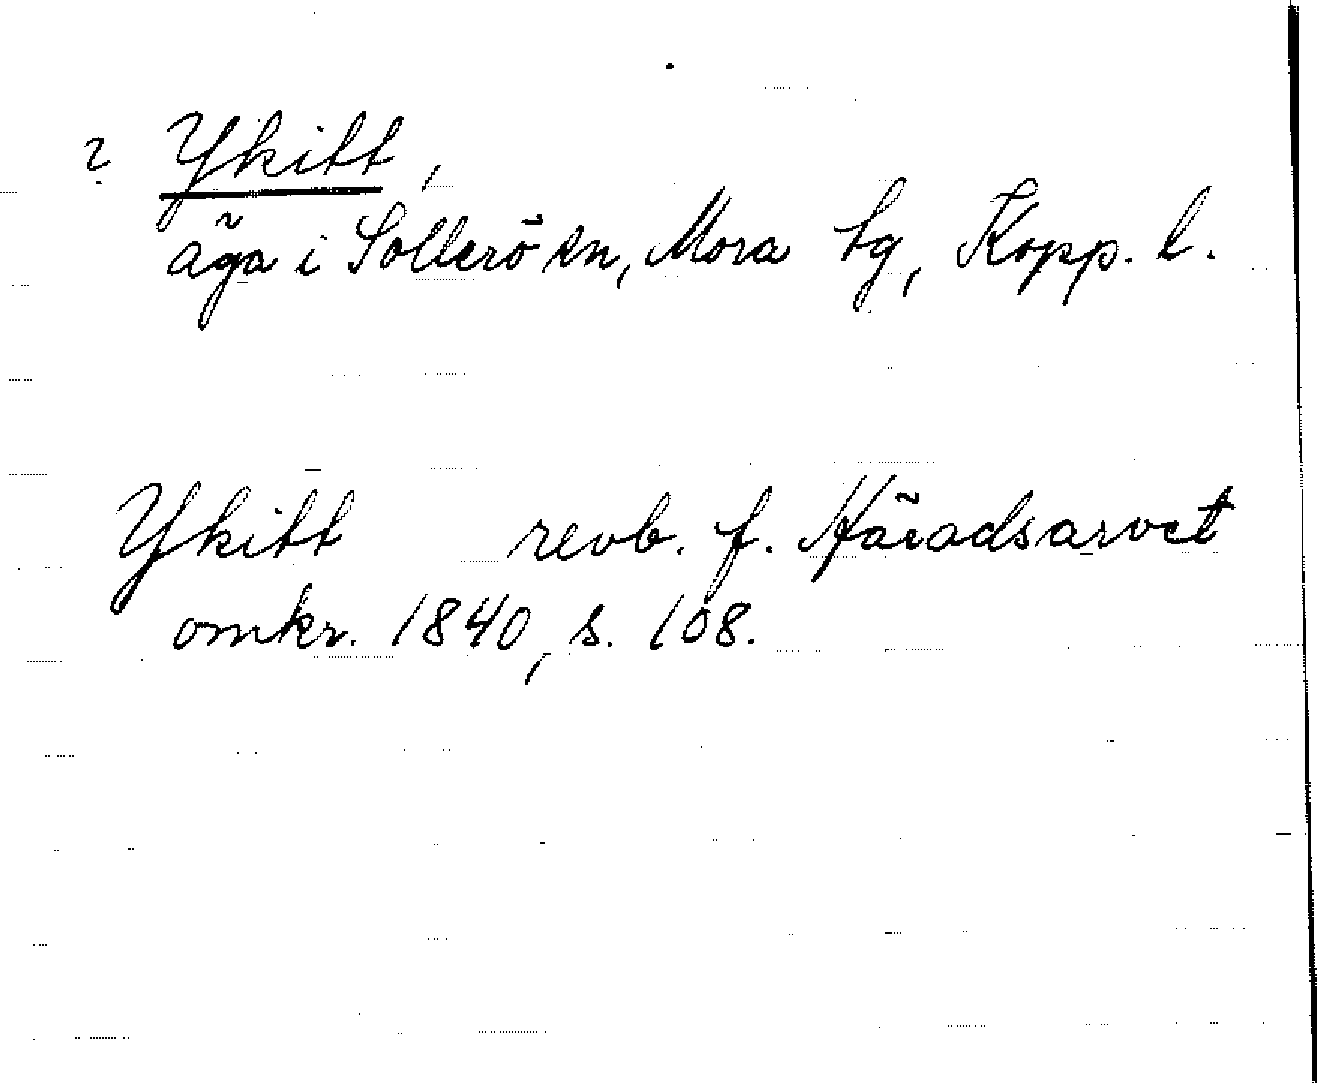 ? Ykitt,
äga i Sollerö sn, Mora tg, Kopp. l.
Ykitt revb. f. Häradsarvet
omkr. 1840, s. 108.